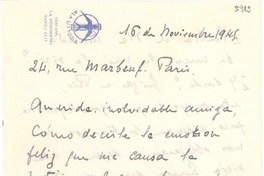 5913
16 de Noviembre 1945.
24, rue Marbeuf. Paris.
Querida, inolvidable amiga,
Cómo decirte la emotion
feliz que me causa la